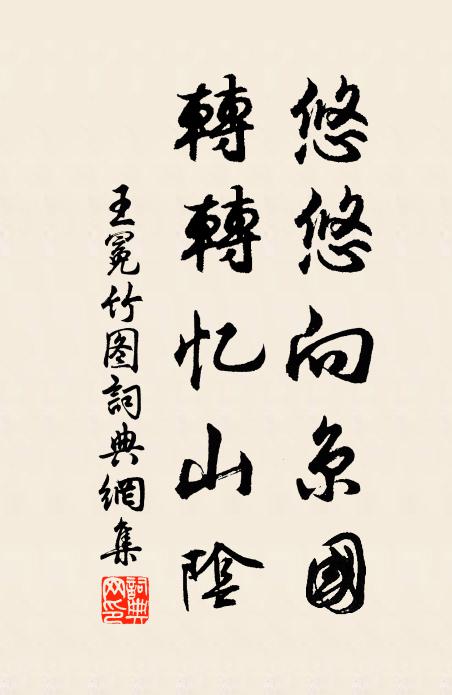 悠悠向京國
轉轉忆山陰
王冕竹图詞典網集
詞典网印